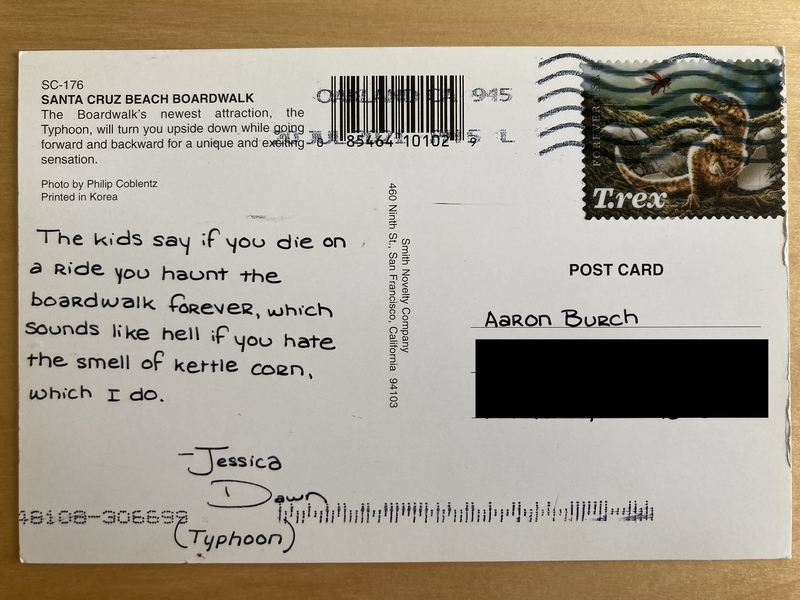 SC-176
SANTA CRUZ BEACH BOARDWALK
The Boardwalk's newest attraction, the
Typhoon, will turn you upside down while going
forward and backward for a unique and exciting
sensation.
Photo by Philip Coblentz
Printed in Korea
OAKLAND CA 945
0 85464 10102 9
FOREVER USA
T.rex
The kids say if you die on
a ride you haunt the
boardwalk forever, which
sounds like hell if you hate
the smell of kettle corn,
which I do.
-Jessica
Dawn
(Typhoon)
Smith Novelty Company
460 Ninth St., San Francisco, California 94103
POST CARD
Aaron Burch
48108-306699